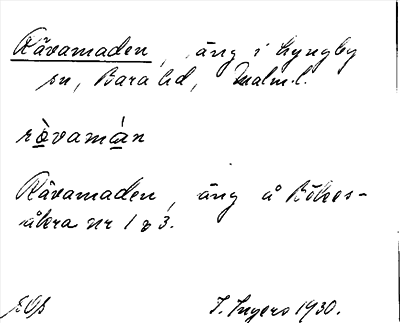 Rävamaden, äng i Lyngby
sn, Bara hd, Malm.l.
rò̱vamá̱n
Rävamaden, äng å Bökes-
åkra nr 1 o 3.
I. Ingers 1930.